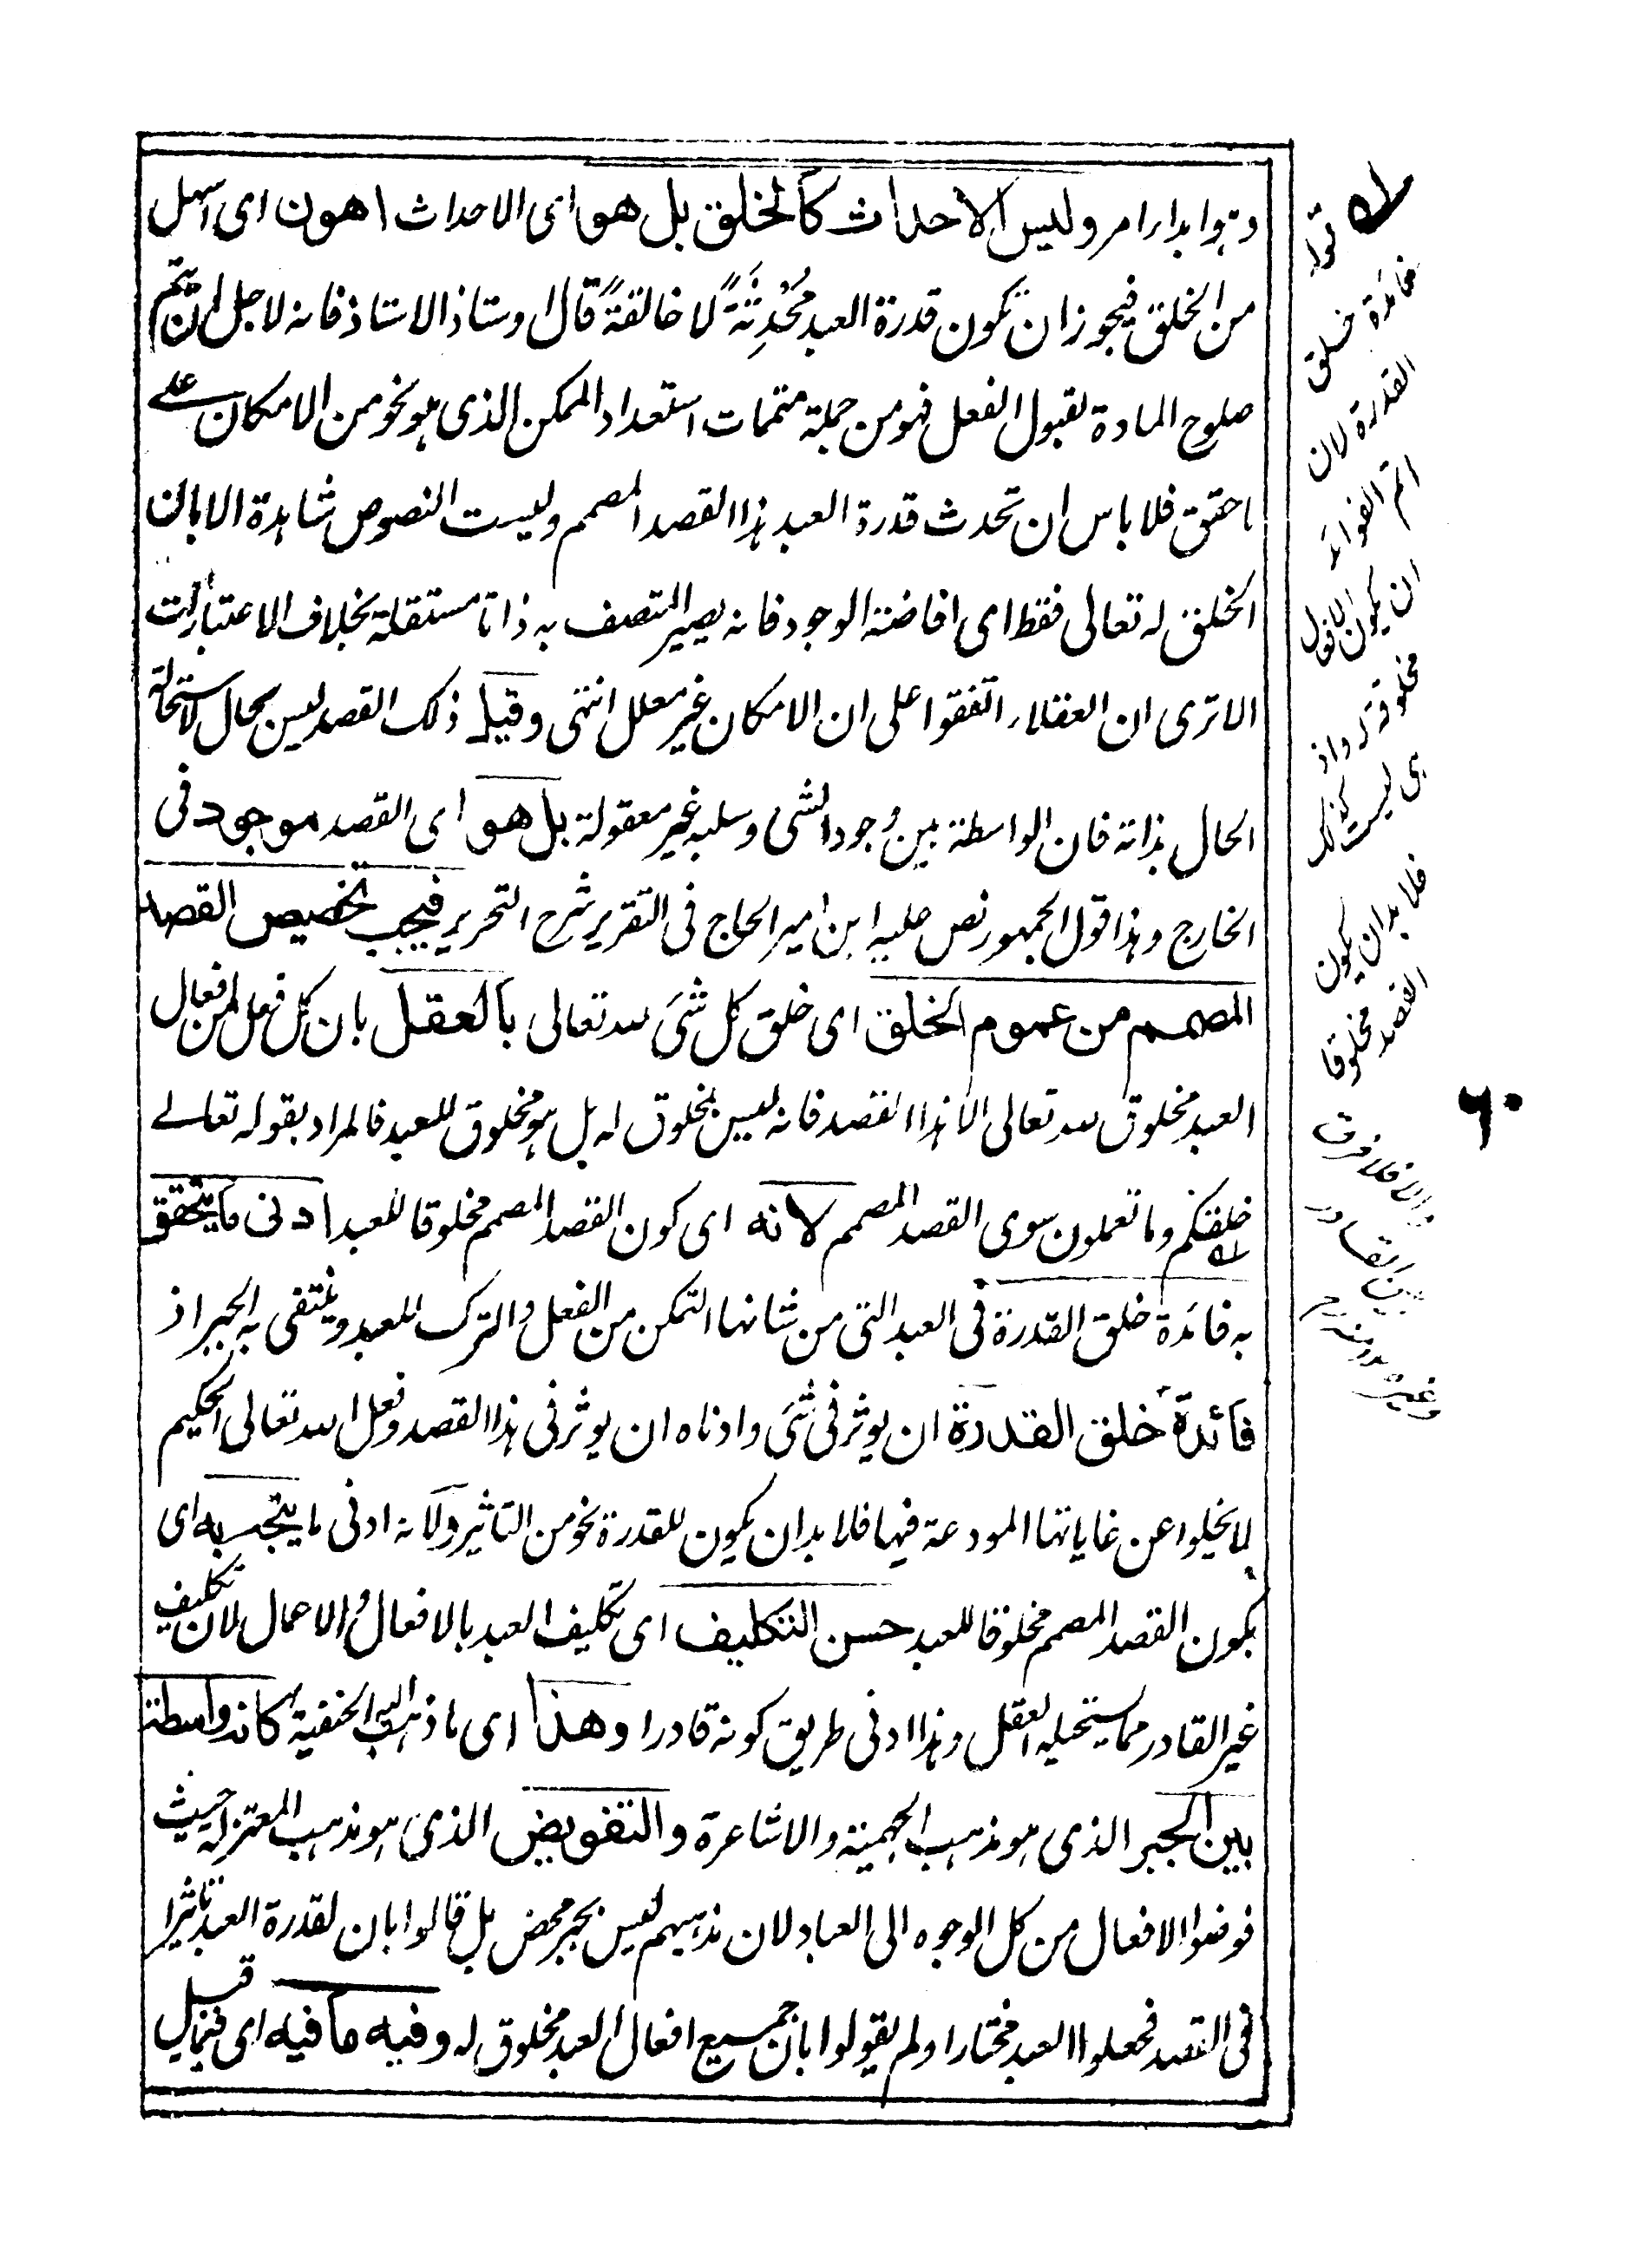 وهو ابدار امر وليس الاحداث كالخلق بل هو اى الاحداث اهون اى اسهل
من الخلق فيجوز ان تكون قدرة العبد مُحْدِثَةً لا خالقةً قال اوستاذ الاستاذ فانه لاجل ان يتم
صلوح المادة لقبول الفعل فهو من جملة متممات استعداد الممكن الذى هو نحو من الامكان على
ما حقق فلا باس ان تحدث قدرة العبد هذا القصد المصمم وليست النصوص شاهدة الا بان
الخلق له تعالى فقط اى افاضة الوجود فانه يصير المتصف به ذاتا مستقلة بخلاف الاعتبارات
الا ترى ان العقلاء اتفقوا على ان الامكان غير معلل انتهى وقيل ذلك القصد ليس بحال لاستحالة
الحال بذاته فان الواسطة بين وجود الشى وسلبه غير معقولة بل هو اى القصد موجود فى
الخارج وهذا قول الجمهور نص عليه ابن امير الحاج فى التقرير شرح التحرير فيجب تخصيص القصد
المصمم من عموم الخلق اى خلق كل شئ لله تعالى بالعقل بان كل فعل من افعال
العبد مخلوق لله تعالى الا هذا القصد فانه ليس بمخلوق له بل هو مخلوق للعبد فالمراد بقوله تعالے
خلقكم وما تعملون سوى القصد المصمم لانه اى كون القصد المصمم مخلوقا للعبد ادنى ما يتحقق
به فائدة خلق القدرة فى العبد التى من شانها التمكن من الفعل والترك للعبد وينتفى به الجبر اذ
فائدة خلق القدرة ان يوثر فى شئ وادناه ان يوثر فى هذا القصد وفعل الله تعالى الحكيم
لا يخلوا عن غاياتها المودعة فيها فلا بد ان يكون للقدرة نحو من التاثير ولانه ادنى ما يتجه به اى
بكون القصد المصمم مخلوقا للعبد حسن التكليف اى تكليف العبد بالافعال والاعمال لان تكليف
غير القادر مما يستحيله العقل وهذا ادنى طريق كونه قادرا وهذا اى ما ذهب اليه الحنفية كانه واسطة
بين الجبر الذى هو مذهب الجهمية والاشاعرة والتفويض الذى هو مذهب المعتزلة حيث
فوضوا الافعال من كل الوجوه الى العباد لان مذهبهم ليس بجبر محض بل قالوا بان لقدرة العبد تاثيرا
فى القصد فجعلوا العبد مختارا ولم يقولوا بان جميع افعال العبد مخلوق له وفيه ما فيه اى فيما قيل
له قوله
فائدة خلق
القدرة لان
اتم الفوائد
ان يكون الافعال
مخلوقة له واذ
هى ليست كذلك
فلا بد ان يكون
القصد مخلوقا
والا فلا فرق
بين القادر
وغيره
٦٠